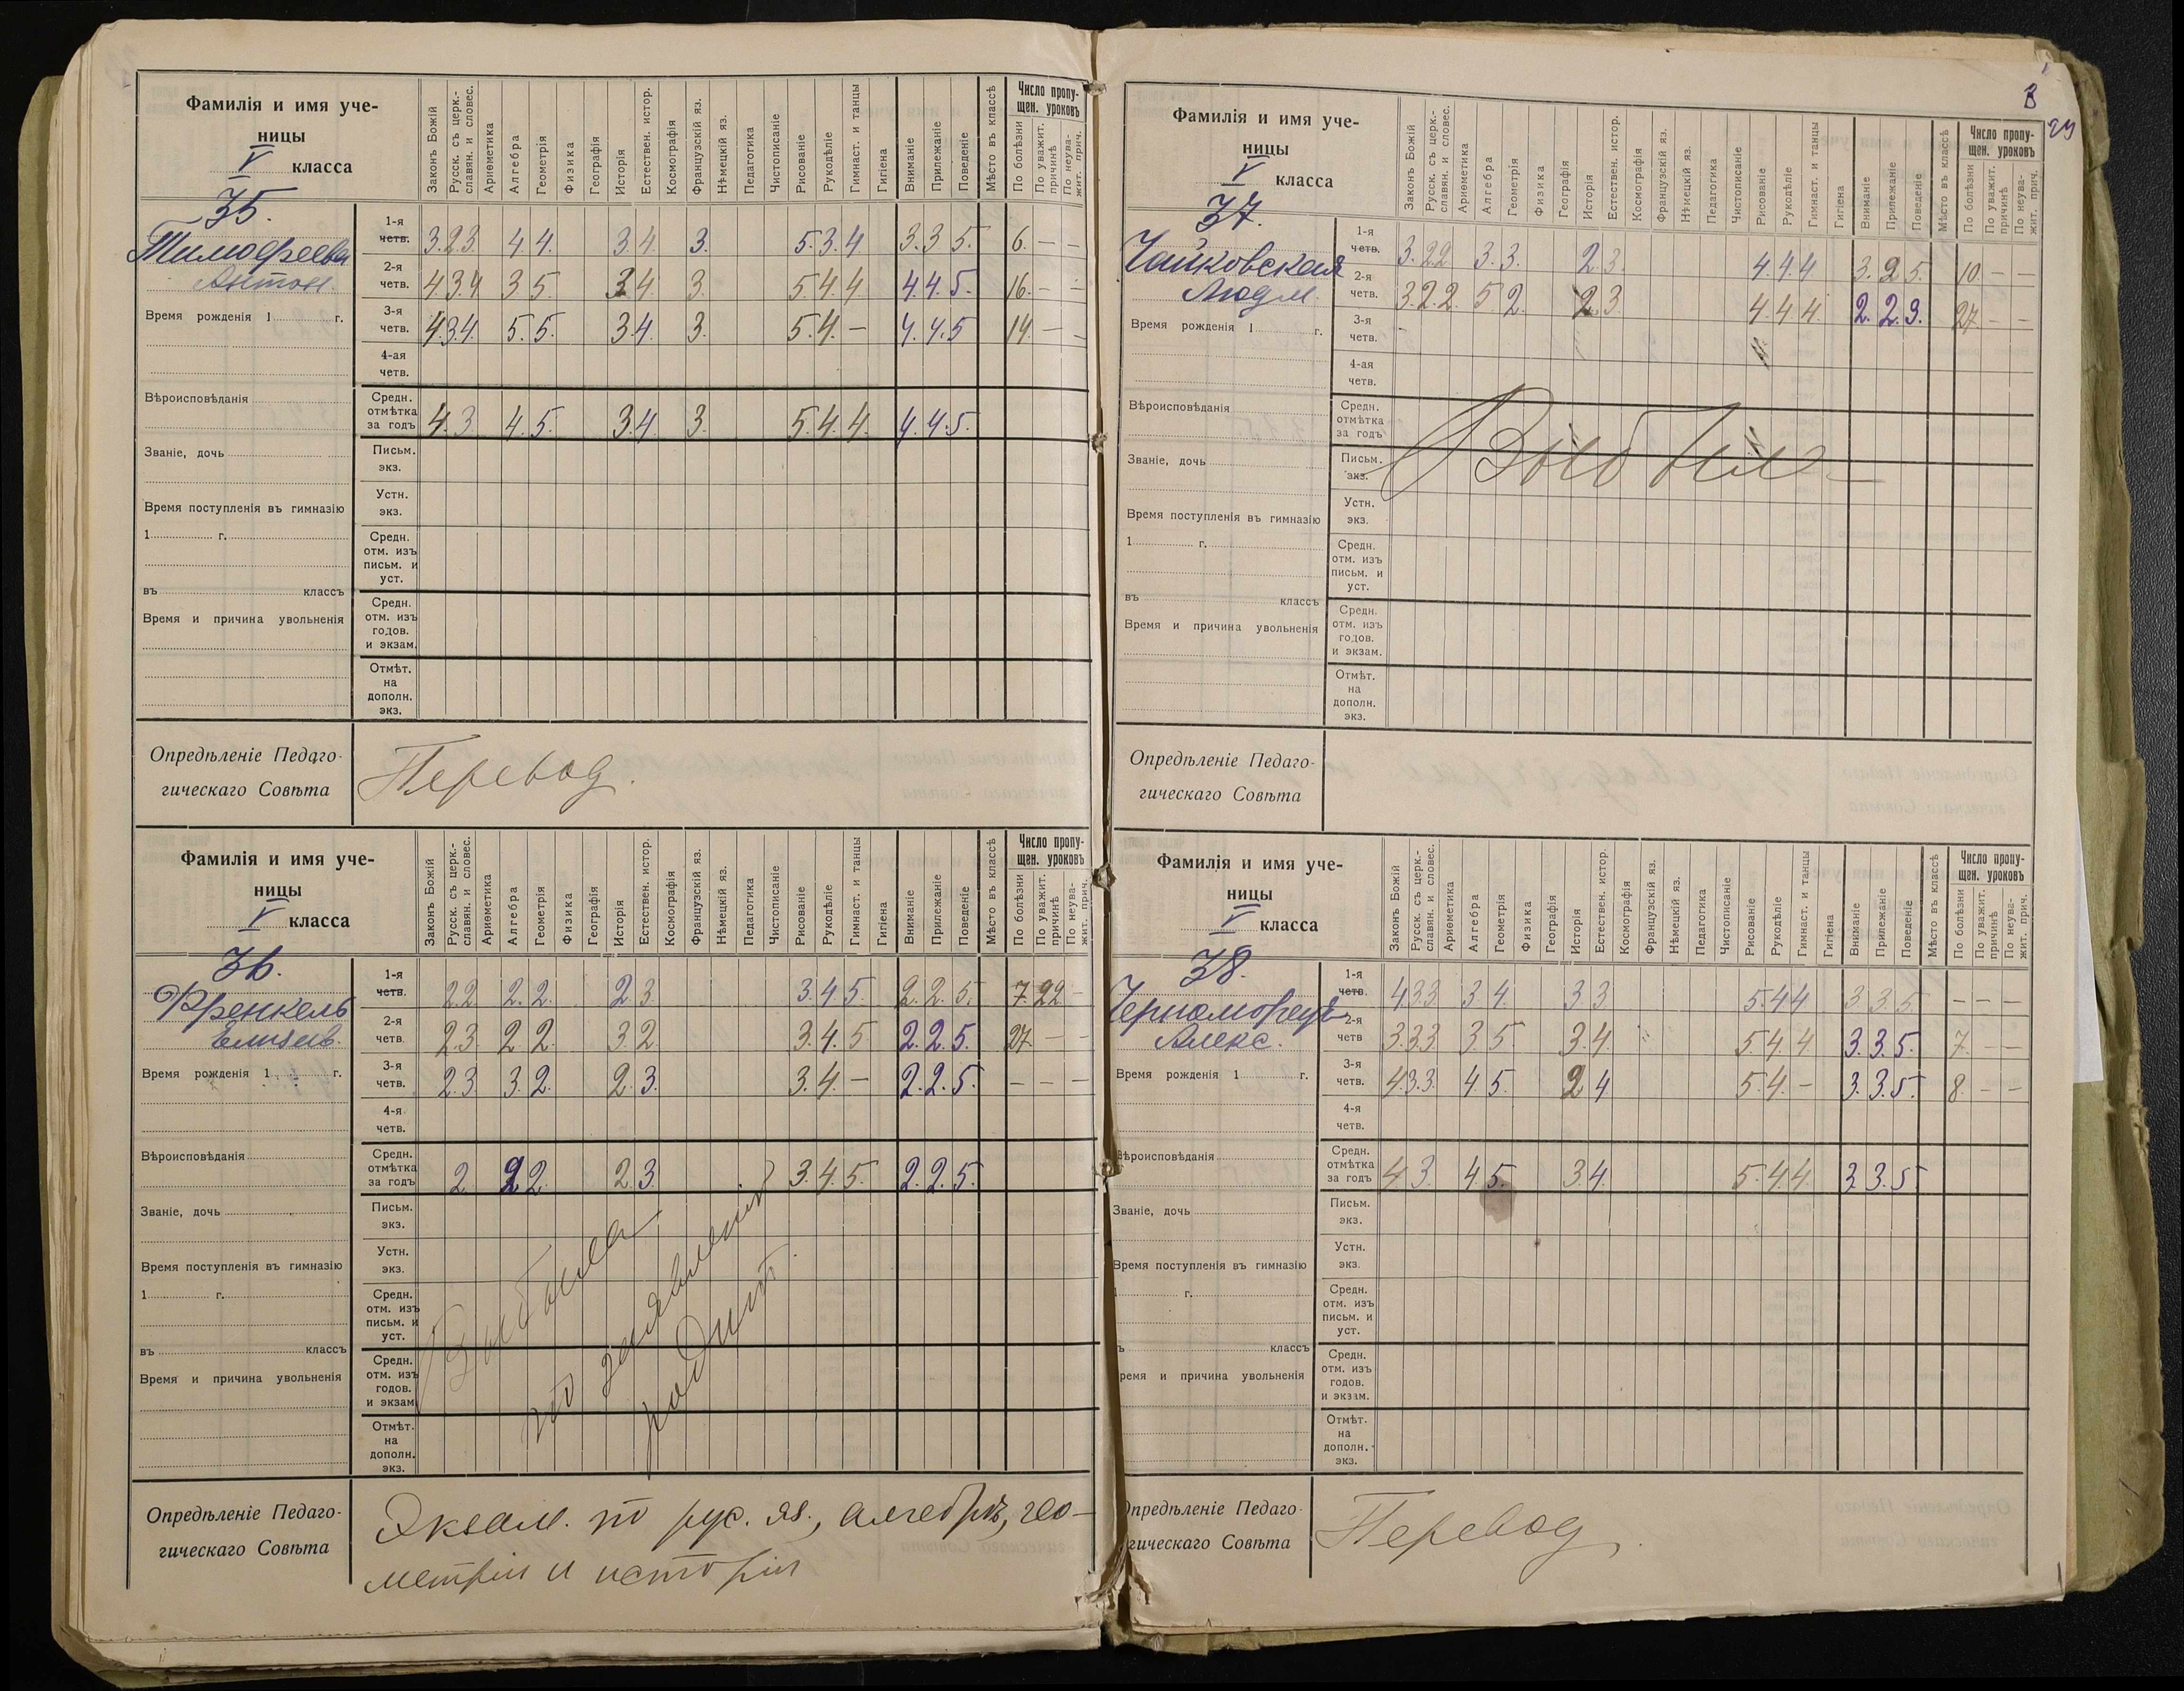 Фамилія и имя уче-
ницы
V класса
Законъ Божій
Русск. съ церк.-
славян. и словес.
Ариѳметика
Алгебра
Геометрія
Физика
Географія
Исторія
Естествен. истор.
Космографія
Французскій яз.
Нѣмецкій яз.
Педагогика
Чистописаніе
Рисованіе
Рукодѣліе
Гимнаст. и танцы
Гигіена
Вниманіе
Прилежаніе
Поведеніе
Мѣсто въ классѣ
Число пропу-
щен. уроковъ
По болѣзни
По уважит.
причинѣ
По неува-
жит. прич.
35.
Тимофреева
Антон.
Время рожденія 1 г.
Вѣроисповѣданія
Званіе, дочь
Время поступленія въ гимназію
1 г.
въ классъ
Время и причина увольненія
1-я четв. 3. 2 3. 4 4. 3 4. 3. 5. 3. 4 3. 3 5. 6. — —
2-я четв. 4 3 4 3 5. 3 4. 3. 5. 4. 4 4. 4. 5. 16. — —
3-я четв. 4. 3 4. 5. 5. 3 4 3. 5. 4. — 4. 4. 5 14. — —
4-ая четв.
Средн. отмѣтка за годъ 4. 3 4. 5. 3. 4. 3. 5. 4. 4. 4. 4. 5.
Письм. экз.
Устн. экз.
Средн. отм. изъ письм. и уст.
Средн. отм. изъ годов. и экзам.
Отмѣт. на дополн. экз.
Опредѣленіе Педаго-
гическаго Совѣта
Перевод.
Фамилія и имя уче-
ницы
V класса
Законъ Божій
Русск. съ церк.-
славян. и словес.
Ариѳметика
Алгебра
Геометрія
Физика
Географія
Исторія
Естествен. истор.
Космографія
Французскій яз.
Нѣмецкій яз.
Педагогика
Чистописаніе
Рисованіе
Рукодѣліе
Гимнаст. и танцы
Гигіена
Вниманіе
Прилежаніе
Поведеніе
Мѣсто въ классѣ
Число пропу-
щен. уроковъ
По болѣзни
По уважит.
причинѣ
По неува-
жит. прич.
36.
Френкель
Елизав.
Время рожденія 1 г.
Вѣроисповѣданія
Званіе, дочь
Время поступленія въ гимназію
1 г.
въ классъ
Время и причина увольненія
1-я четв. 2 2. 2. 2. 2 3. 3. 4 5. 2. 2. 5. 7. 22 —
2-я четв. 2 3. 2 2. 3. 2. 3. 4. 5 2. 2. 5. 27. — —
3-я четв. 2 3. 3. 2. 2 3. 3. 4. — 2. 2. 5. — — —
4-я четв.
Средн. отмѣтка за годъ 2. 2 2. 2. 3. 3. 4. 5. 2. 2. 5.
Письм. экз.
Устн. экз.
Средн. отм. изъ письм. и уст.
Средн. отм. изъ годов. и экзам.
Отмѣт. на дополн. экз.
Выбыла
по заявленію
родит.
Опредѣленіе Педаго-
гическаго Совѣта
Экзам. по рус. яз., алгебрѣ, гео-
метріи и исторіи
29
Фамилія и имя уче-
ницы
V класса
Законъ Божій
Русск. съ церк.-
славян. и словес.
Ариѳметика
Алгебра
Геометрія
Физика
Географія
Исторія
Естествен. истор.
Космографія
Французскій яз.
Нѣмецкій яз.
Педагогика
Чистописаніе
Рисованіе
Рукодѣліе
Гимнаст. и танцы
Гигіена
Вниманіе
Прилежаніе
Поведеніе
Мѣсто въ классѣ
Число пропу-
щен. уроковъ
По болѣзни
По уважит.
причинѣ
По неува-
жит. прич.
37.
Чайковская
Людм.
Время рожденія 1 г.
Вѣроисповѣданія
Званіе, дочь
Время поступленія въ гимназію
1 г.
въ классъ
Время и причина увольненія
1-я четв. 3. 2 2 3. 3. 2 3. 4. 4. 4 3. 2 5. 10. —
2-я четв. 3. 2. 2. 5 2. 2. 3. 4. 4 4. 2. 2. 3. 27. — —
3-я четв.
4-ая четв.
Средн. отмѣтка за годъ
Письм. экз.
Устн. экз.
Средн. отм. изъ письм. и уст.
Средн. отм. изъ годов. и экзам.
Отмѣт. на дополн. экз.
Выбыла
Опредѣленіе Педаго-
гическаго Совѣта
Фамилія и имя уче-
ницы
V класса
Законъ Божій
Русск. съ церк.-
славян. и словес.
Ариѳметика
Алгебра
Геометрія
Физика
Географія
Исторія
Естествен. истор.
Космографія
Французскій яз.
Нѣмецкій яз.
Педагогика
Чистописаніе
Рисованіе
Рукодѣліе
Гимнаст. и танцы
Гигіена
Вниманіе
Прилежаніе
Поведеніе
Мѣсто въ классѣ
Число пропу-
щен. уроковъ
По болѣзни
По уважит.
причинѣ
По неува-
жит. прич.
38.
Черноморецъ
Алекс.
Время рожденія 1 г.
Вѣроисповѣданія
Званіе, дочь
Время поступленія въ гимназію
г.
классъ
Время и причина увольненія
1-я четв. 4 3 3 3 4. 3 3 5. 4 4 3. 3. 5 — — —
2-я четв 3. 3 3 3. 5. 3. 4. 5. 4. 4 3. 3. 5. 7. — —
3-я четв. 4. 3. 3. 4. 5. 2 4 5. 4. — 3. 3. 5. 8. — —
4-я четв.
Средн. отмѣтка за годъ 4 3. 4. 5. 3. 4. 5. 4. 4. 3. 3. 5
Письм. экз.
Устн. экз.
Средн. отм. изъ письм. и уст.
Средн. отм. изъ годов. и экзам.
Отмѣт. на дополн. экз.
Опредѣленіе Педаго-
гическаго Совѣта
Перевод.